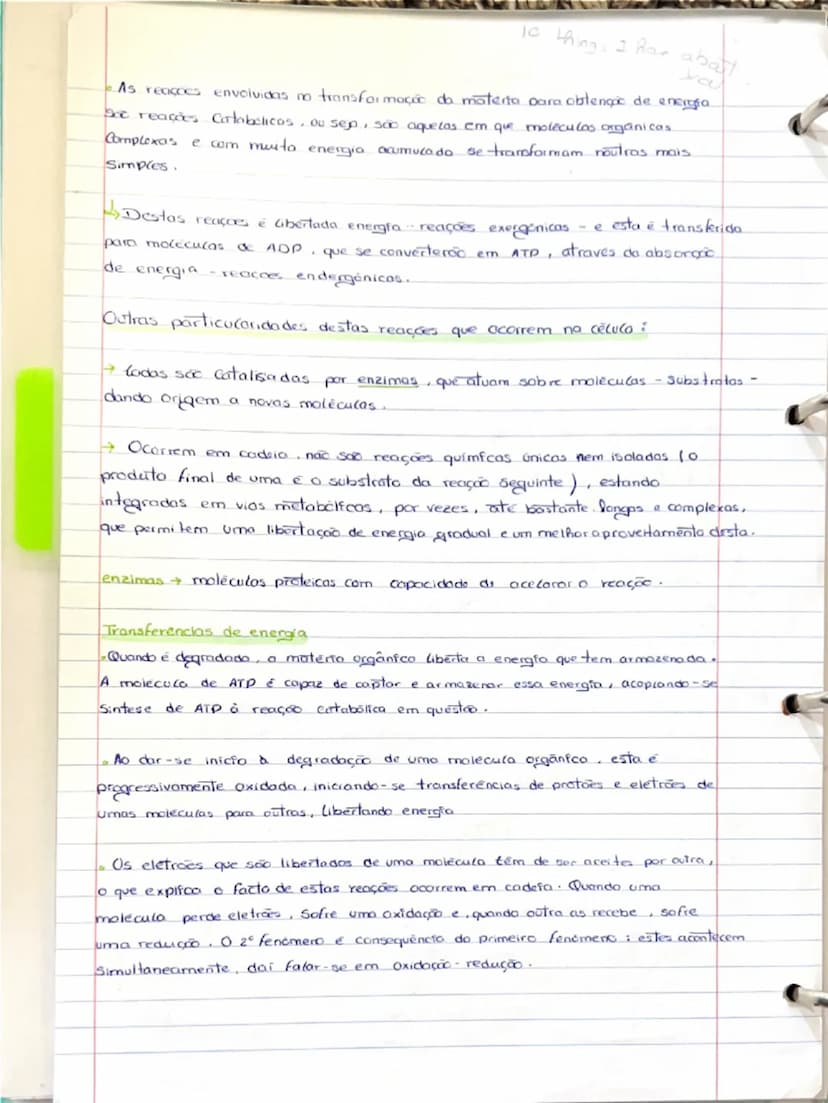 10 things I hate about
you
• As reações envolvidas na transformação da matéria para obtenção de energia
são reações Catabólicas, ou seja, são aquelas em que moléculas orgânicas
Complexas e com muita energia acumulada se transformam noutras mais
Simples.
↳ Destas reações é libertada energia - reações exergónicas - e esta é transferida
para moléculas de ADP, que se converterão em ATP, através da absorção
de energia - reações endergónicas.
Outras particularidades destas reações que ocorrem na célula:
→ todas são catalisadas por enzimas, que atuam sobre moléculas - Substratos -
dando origem a novas moléculas.
→ Ocorrem em cadeia, não são reações químicas únicas nem isoladas (o
produto final de uma é o substrato da reação seguinte), estando
integradas em vias metabólicas, por vezes, até bastante longas e complexas,
que permitem uma libertação de energia gradual e um melhor aproveitamento desta.
enzimas → moléculas proteicas com capacidade de acelarar a reação.
Transferências de energia
• Quando é degradada, a matéria orgânica liberta a energia que tem armazenada.
A molécula de ATP é capaz de captar e armazenar essa energia, acoplando-se
Síntese de ATP à reação catabólica em questão.
• Ao dar-se início à degradação de uma molécula orgânica, esta é
progressivamente oxidada, iniciando-se transferências de protões e eletrões de
umas moléculas para outras, libertando energia
• Os eletrões que são libertados de uma molécula têm de ser aceites por outra,
o que explica o facto de estas reações ocorrem em cadeia. Quando uma
molécula perde eletrões, Sofre uma oxidação e, quando outra as recebe, sofre
uma redução. O 2º fenómeno é consequência do primeiro fenómeno; estes acontecem
Simultaneamente, daí falar-se em oxidação-redução.